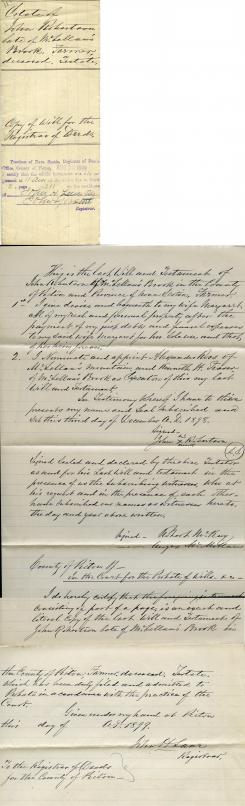 Estate of
John Robertson
late of McLellan's
Brook, Farmer,
deceased, Testate.
Copy of Will for the
Registrar of Deeds.
Province of Nova Scotia, Registrar of Deeds
Office, County of Pictou,
I certify that the within instrument was duly
Registrar.
This is the Last Will and Testament of
John Robertson of McLellan's Brook in the County of
Pictou and Province of Nova Scotia, Farmer
1st I give devise and bequeath to my wife Margaret,
all of my real and personal property after the
payment of my just debts and funeral expenses
to my said wife Margaret for her
2. I Nominate and appoint Alexander Ross of
McLellan's Mountain and Kenneth H. Fraser
of McLellan's Brook as Executors of this my Last
Will and Testament.
In Testimony whereof I have to these
presents my name and Seal Subscribed and
Set this third day of December A.D. 1898.
Signed
John Robertson
Signed Sealed and declared by the above Testator
as and for his Last will and testament in the
presence of us the Subscribing witnesses who at
his request and in the presence of each other
have Subscribed our names as witnesses hereto,
the day and year above written
Signed - Robert McKay
Angus
County of Pictou SS
In the Court for the Probate of Wills, &c
I do hereby certify that the foregoing
consisting of part of a page, is an exact and
literal Copy of the Last Will and Testament of
John Robertson late of McLellan's Brook in
the County of Pictou Farmer deceased, Testate
which has been duly filed and admitted to
Probate in accordance with the practice of the
Court.
Given under my hand at Pictou
this day of A.D. 1899
Registrar,
To the Registrar of Deeds
for the County of Pictou